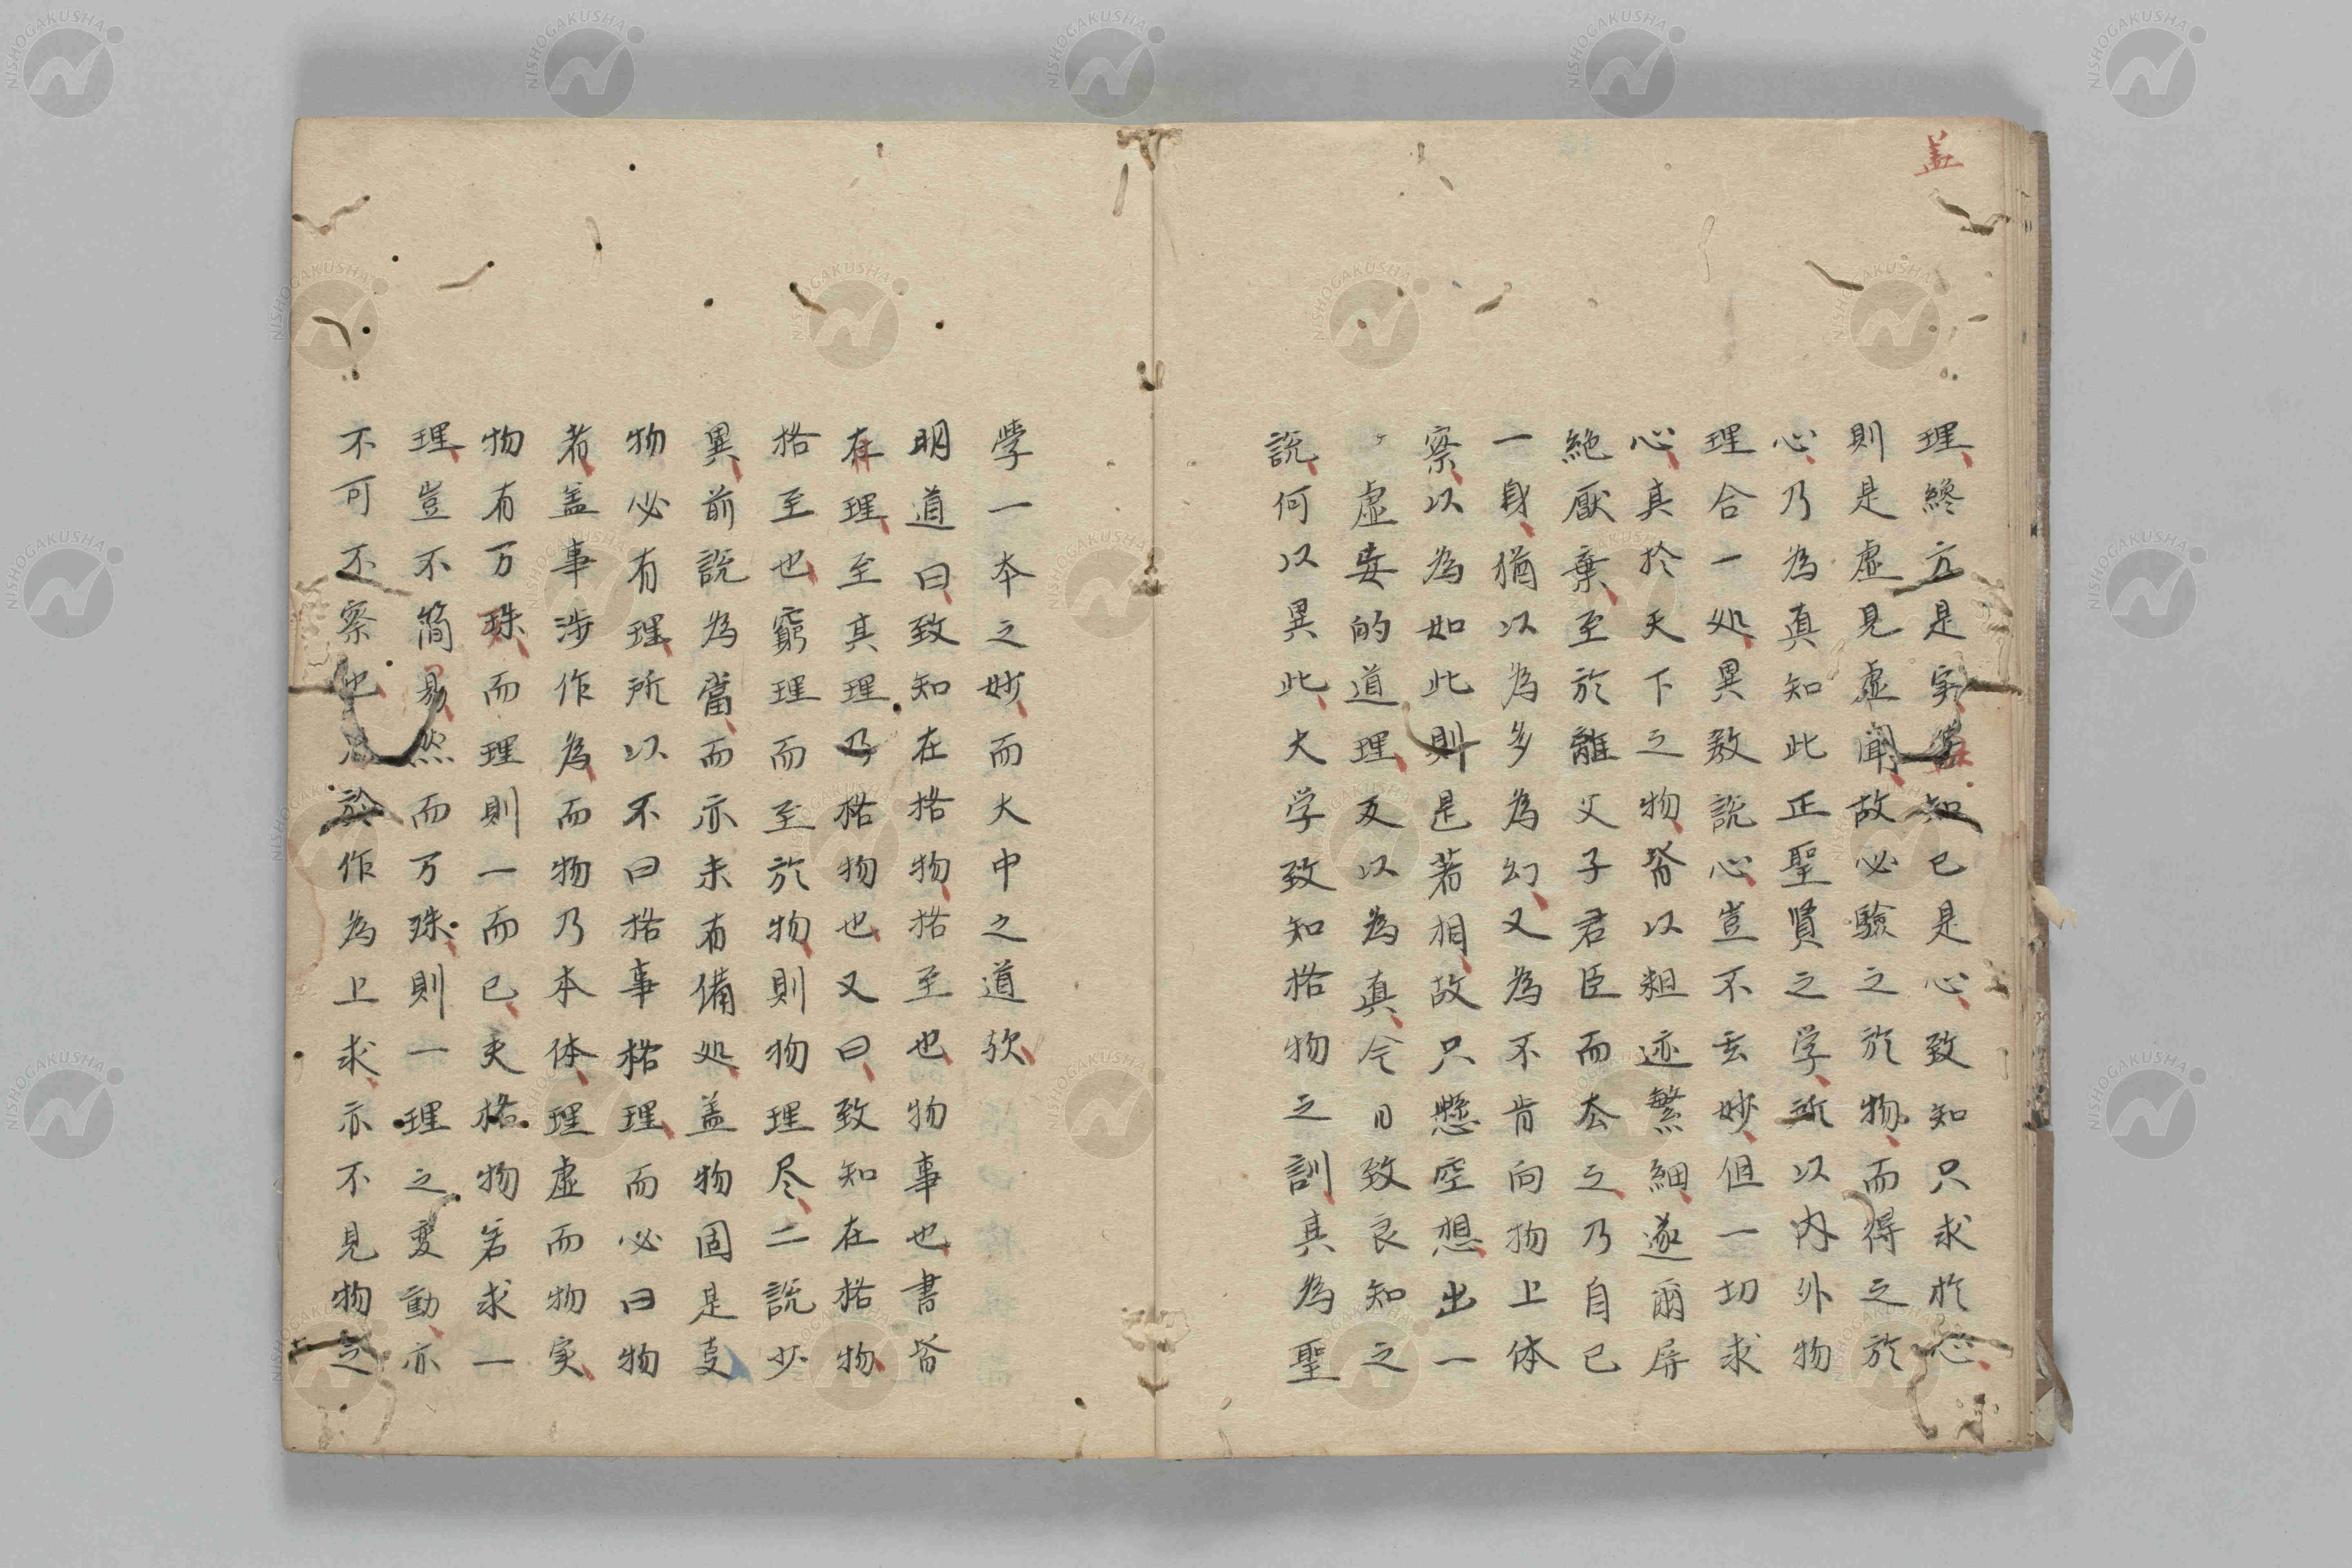 盖
理終方是実学知已是心致知只求於心
則是虚見虚聞故必驗之於物而得之於
心乃為真知此正聖賢之学所以内外物
理合一処異教説心豈不玄妙但一切求
心其於天下之物嵆以粗迹繁細遂爾屏
絶厭棄至於離父子君臣而去之乃自己
一身猶以為多為幻又為不肯向物上体
察以為如此則是著相故只懸空想出一
虚妄的道理反以為真今日致良知之
説何以異此大学致知格物之訓其為聖
学一本之妙而大中之道欤
明道曰致知在格物格至也物事也書嵆
在理至其理乃格物也又曰致知在格物
格至也窮理而至於物則物理尽二説少
異前説為當而亦未有備処盖物固是支
物必有理所以不曰格事格理而必曰物
者盖事涉作為而物乃本体理虚而物実
物有万殊而理則一而已夫格物若求一
理豈不簡易然而万殊則一理之変動亦
不可不察也於作為上求亦不見物之
NISHOGAKUSHA